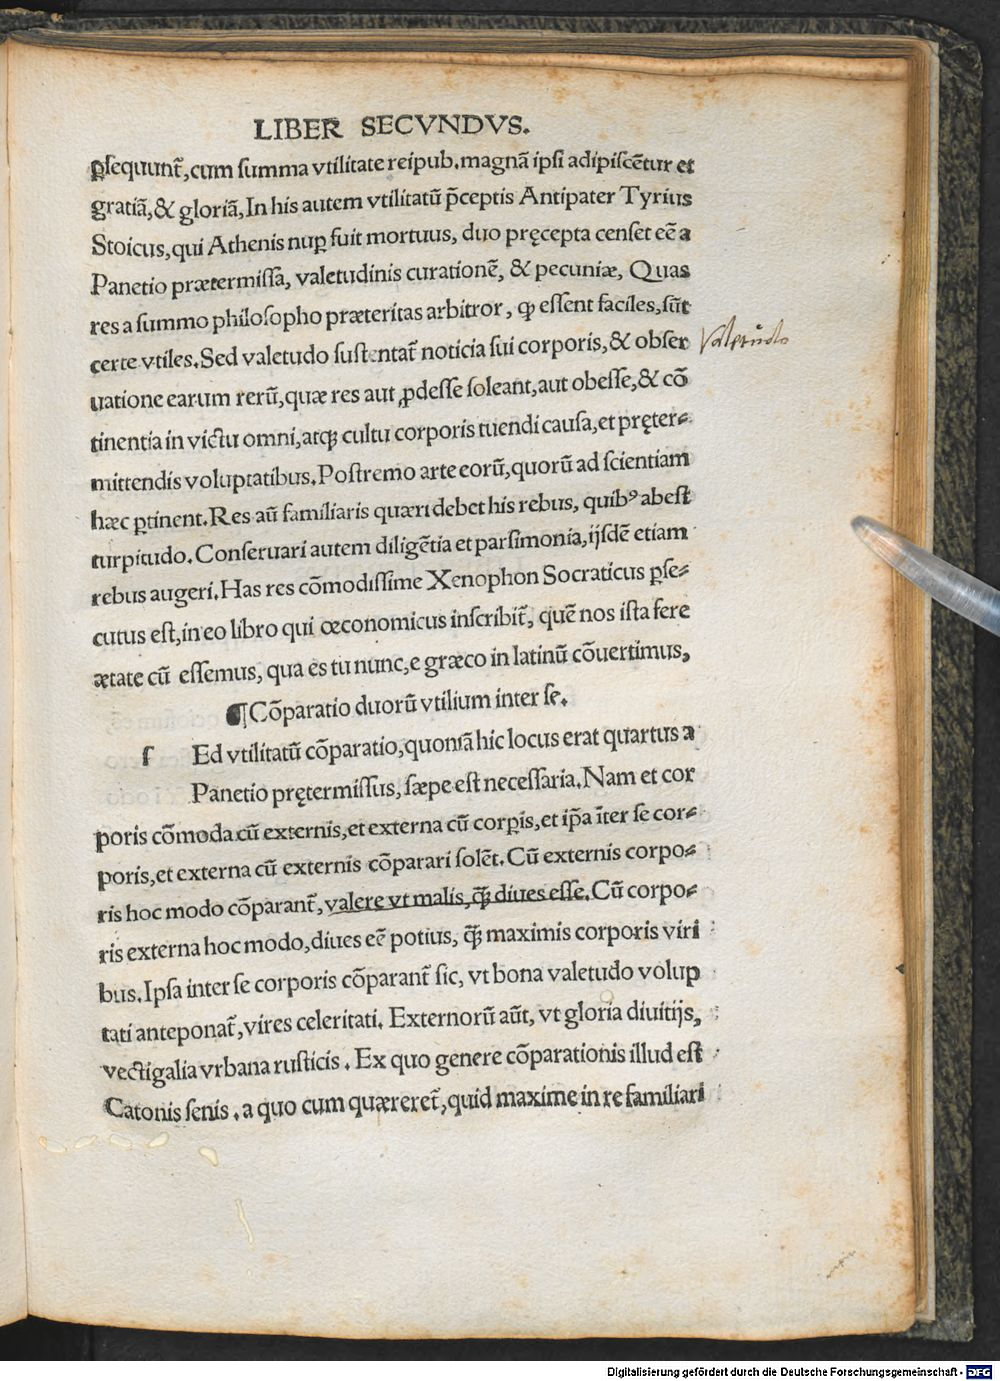 LIBER SECVNDVS.
ꝑsequunt̃,cum summa vtilitate reipub.magnã ipsi adipiscẽtur et
gratiã,& gloriã,In his autem vtilitatũ p̃ceptis Antipater Tyrius
Stoicus,qui Athenis nuꝑ fuit mortuus, duo pręcepta censet eẽ a
Panetio prætermissa, valetudinis curationẽ, & pecuniæ, Quas
res a summo philosopho præteritas arbitror, ꝙ essent faciles,sũt
certe vtiles.Sed valetudo sustentat̃ noticia sui corporis,& obser
uatione earum rerũ,quæ res aut ꝓdesse soleant,aut obesse,& cõ
tinentia in victu omni,atqꝫ cultu corporis tuendi causa,et pręter⸗
mittendis voluptatibus.Postremo arte eorũ,quorũ ad scientiam
hæc ꝑtinent.Res aũ familiaris quæri debet his rebus, quibꝰ abest
turpitudo.Conseruari autem diligẽtia et parsimonia,ijsdẽ etiam
rebus augeri.Has res cõmodissime Xenophon Socraticus ꝑse⸗
cutus est,in eo libro qui œconomicus inscribit̃, quẽ nos ista fere
ætate cũ essemus, qua es tu nunc,e græco in latinũ cõuertimus,
¶Cõparatio duorũ vtilium inter se.
s Ed vtilitatũ cõparatio,quoniã hic locus erat quartus a
Panetio prętermissus, sæpe est necessaria.Nam et cor
poris cõmoda cũ externis,et externa cũ corꝑis,et ip̃a ĩter se cor⸗
poris,et externa cũ externis cõparari solẽt.Cũ externis corpo⸗
ris hoc modo cõparant̃,valere vt malis,ꝙ̃ diues esse.Cũ corpo⸗
ris externa hoc modo,diues eẽ potius, ꝙ̃ maximis corporis viri
bus.Ipsa inter se corporis cõparant̃ sic, vt bona valetudo volup
tati anteponat̃,vires celeritati. Externorũ aũt, vt gloria diuitijs,
vectigalia vrbana rusticis . Ex quo genere cõparationis illud est
Catonis senis . a quo cum quæreret̃,quid maxime in re familiari
Valetudo
Digitalisierung gefördert durch die Deutsche Forschungsgemeinschaft - DFG